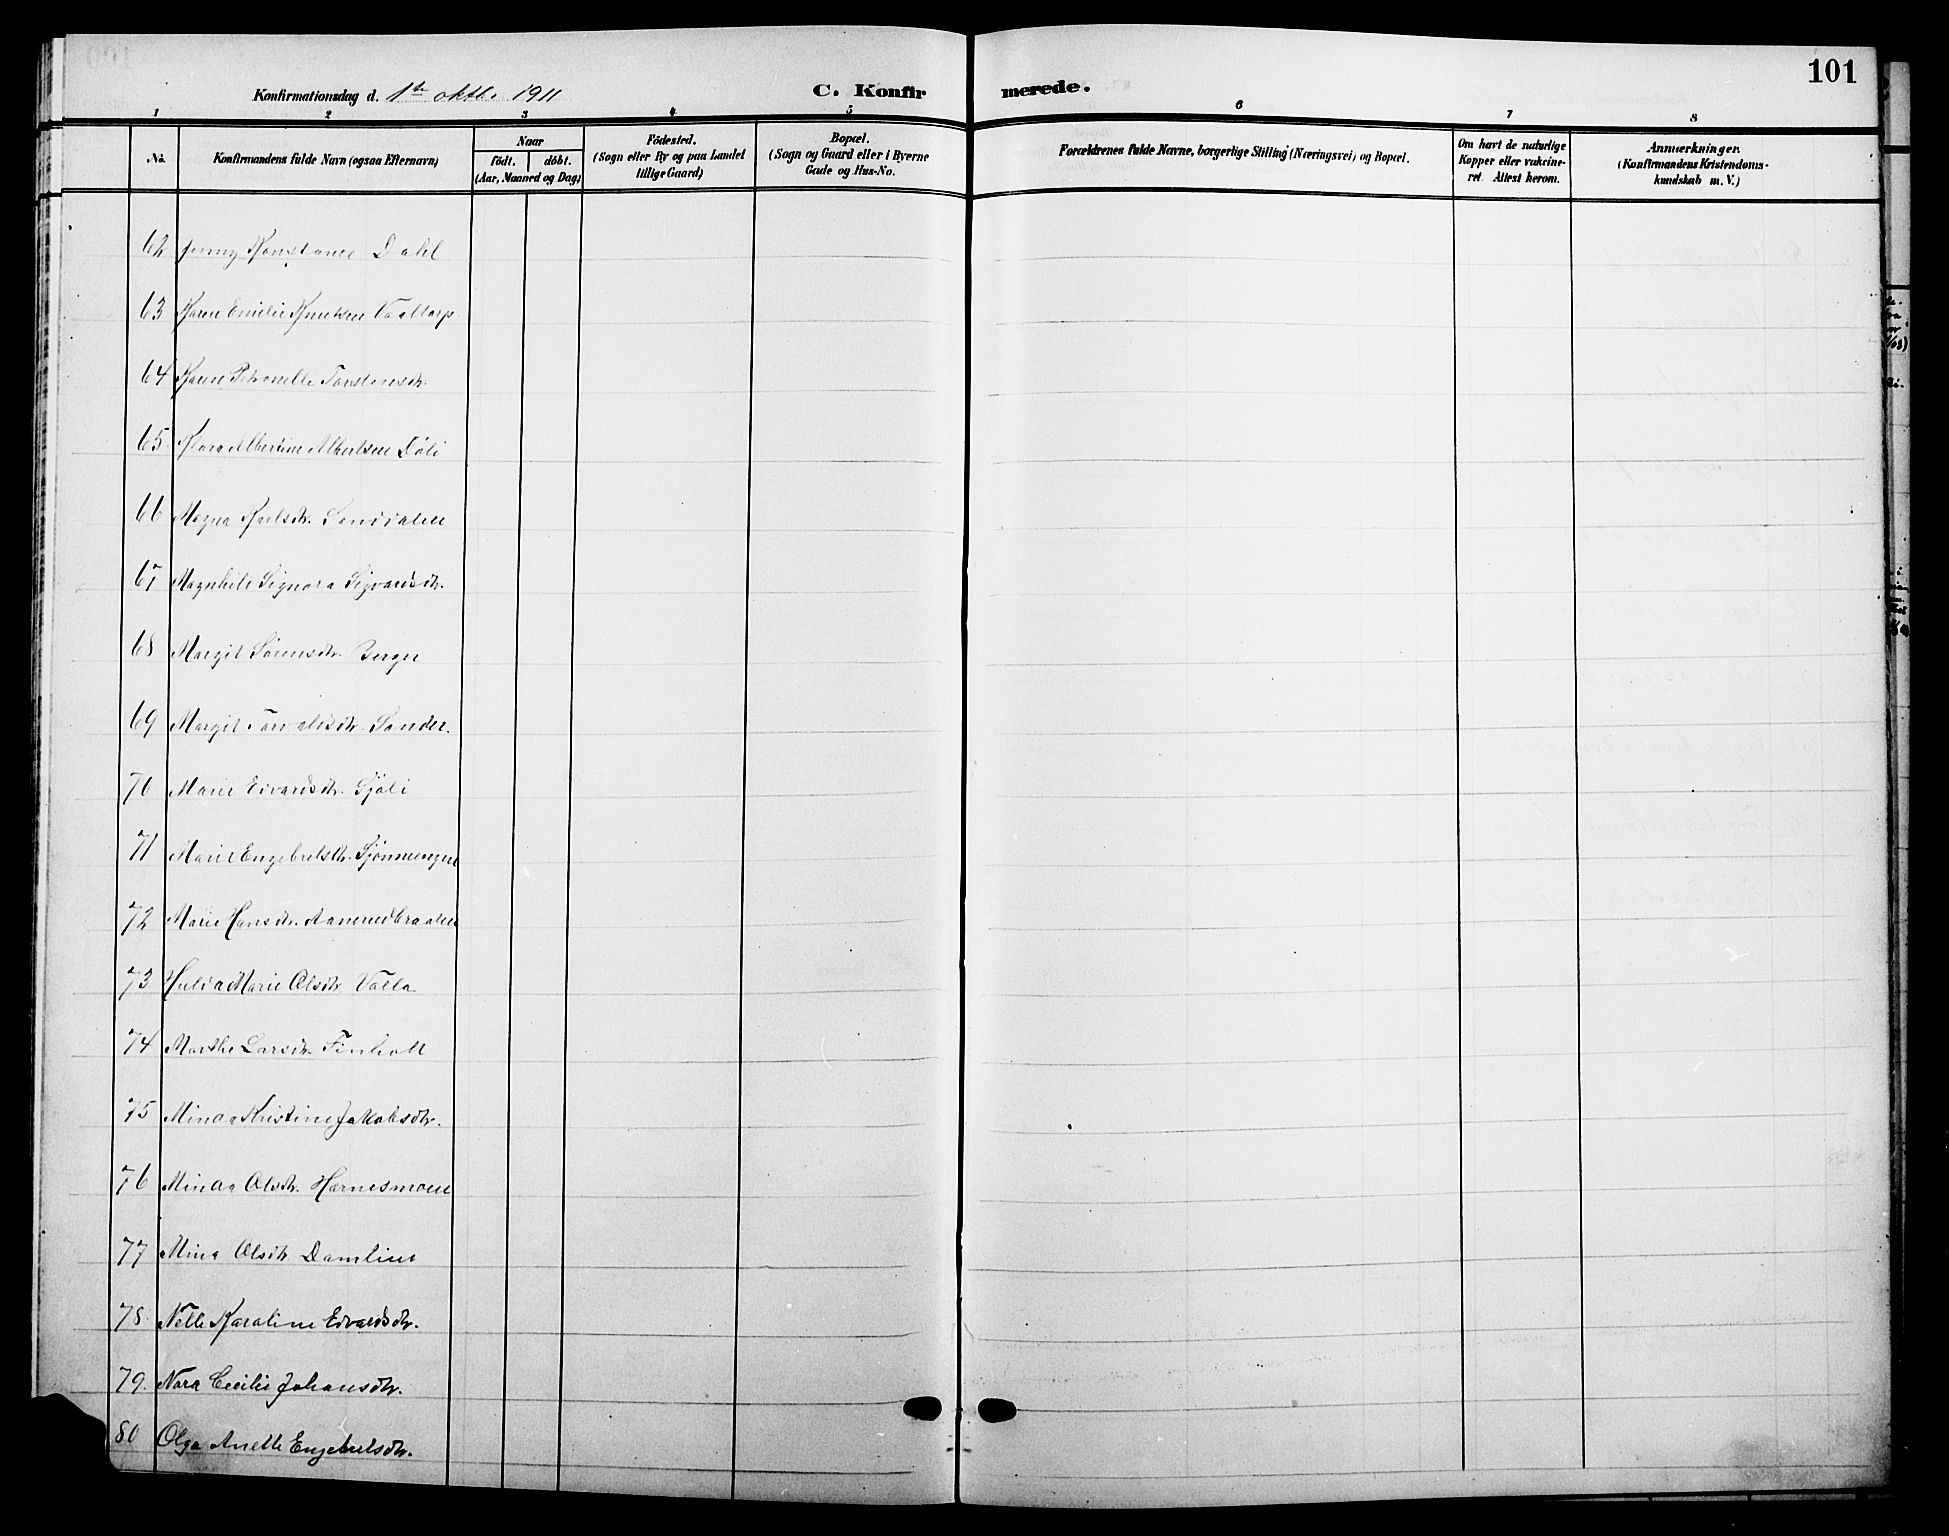 101
Konfirmationsdag d. 1ste oktb. 1911
C. Konfirmerede.
1 2 3 4 5 6 7 8
No.
Konfirmandens fulde Navn (ogsaa Efternavn)
Naar
født. døbt.
(Aar, Maaned og Dag)
Fødested.
(Sogn eller By og paa Landet
tillige Gaard)
Bopæl.
(Sogn og Gaard eller i Byerne
Gade og Hus-No.
Forældrenes fulde Navne, borgerlige Stilling (Næringsvei) og Bopæl.
Om havt de naturlige
Kopper eller vakcine-
ret. Attest herom.
Anmærkninger.
(Konfirmandens Kristendoms-
kundskab m. V.)
62 Jenny Konstance Dahl
63 Karen Emilie Knutsen Vaaltorp
64 Karen Petronelle Torstensdtr.
65 Klara Albertine Albertsen Döli
66 Magna Karlsdtr. Sanddalen
67 Magnhild Signora Sigvardsdtr.
68 Margit Sörensdtr. Berger
69 Margit Torvaldsdtr. Sander.
70 Marie Edvardsdtr. Sjöli
71 Marie Engebretsdtr. Sjönnengen
72 Marie Hansdtr. Aanerudbraaten
73 Hulda Marie Olsdtr. Valla
74 Marthe Larsdtr. Finholt
75 Minda Kristine Jakobsdtr.
76 Minda Olsdtr. Hærnesmoen
77 Mina Olsdtr. Damlien
78. Nelli Karoline Edvardsdtr.
79. Nora Cecilie Johansdtr.
80 Olga Anette Engebretsdtr.